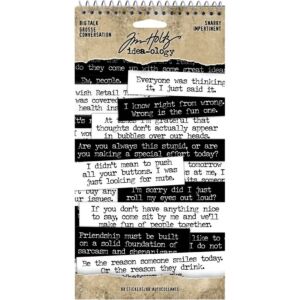 BIG TALK
GROSSE
CONVERSATION
Tim Holtz
idea-ology
SNARKY
IMPERTINENT
do they come up with some great ideas
Ew, people.
Everyone was thinking
it, I just said it.
wish Retail
was covered
health
I know right from wrong.
Wrong is the fun one.
At times I'm grateful that
thoughts don't actually appear
in bubbles over our heads.
Are you always this stupid, or are
you making a special effort today?
I didn't mean to push
all your buttons. I was
just looking for mute.
tomorrow
at me
buy any
your issues.
I'm sorry did I just
roll my eyes out loud?
If you don't have anything nice
to say, come sit by me and we'll
make fun of people together.
Friendship must be built
on a solid foundation of
sarcasm and shenanigans.
like to
I do not
Be the reason someone smiles today.
Or the reason they drink.
Whatever works.